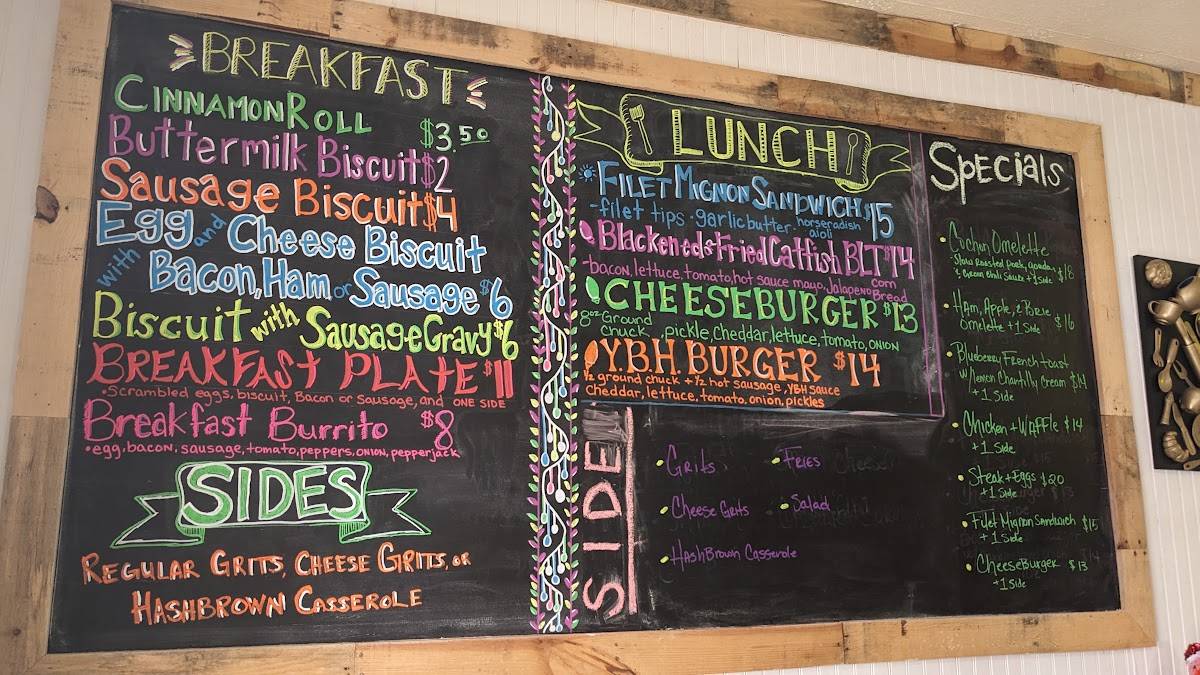 BREAKFAST
CINNAMON ROLL $3.50
Buttermilk Biscuit $2
Sausage Biscuit $4
Egg and Cheese Biscuit
with Bacon, Ham, or Sausage $6
Biscuit with Sausage Gravy $6
BREAKFAST PLATE $11
•Scrambled eggs, biscuit, Bacon or Sausage, and ONE SIDE
Breakfast Burrito $8
•egg, bacon, sausage, tomato, peppers, onion, pepperjack
SIDES
REGULAR GRITS, CHEESE GRITS, OR
HASHBROWN CASSEROLE
LUNCH
FILET MIGNON SANDWICH $15
-filet tips - garlic butter - horseradish
aioli
Blackened or Fried Catfish BLT $14
-bacon, lettuce, tomato, hot sauce mayo, Jalapeno corn
Bread
CHEESEBURGER $13
8oz Ground
chuck, pickle, cheddar, lettuce, tomato, ONION
Y.B.H. BURGER $14
1/2 ground chuck + 1/2 hot sausage, YBH sauce
cheddar, lettuce, tomato, onion, pickles
SIDE
• Grits
• FRIES
• Cheese Grits
• Salad
• HashBrown Casserole
Specials
• Cochon Omelette
Slow Roasted Pork, $18
+ 1 Side
• Ham, Apple, & Brie
Omelette + 1 Side $16
• Blueberry French toast
w/ lemon Chantilly Cream $14
+ 1 Side
• Chicken + Waffle $14
+ 1 Side
• Steak + Eggs $20
+ 1 Side
• Filet Mignon Sandwich $15
+ 1 Side
• CheeseBurger $13
+ 1 Side